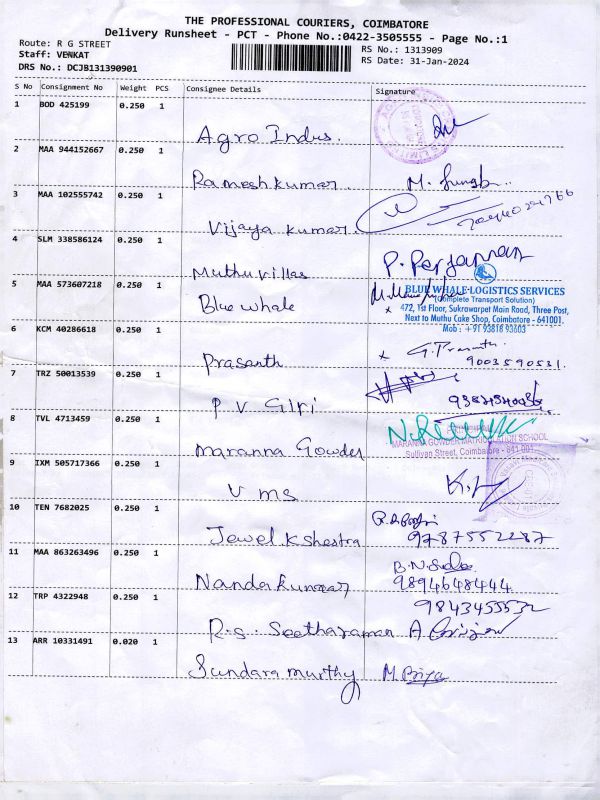 THE PROFESSIONAL COURIERS, COIMBATORE
Delivery Runsheet - PCT - Phone No.:0422-3505555 - Page No.:1
Route: R G STREET
Staff: VENKAT
DRS No.: DCJB131390901
RS No.: 1313909
RS Date: 31-Jan-2024
S No Consignment No Weight PCS Consignee Details Signature
1 BOD 425199 0.250 1
Agro Indus.
2 MAA 944152667 0.250 1
Rameshkumar M.
3 MAA 102555742 0.250 1
Vijaya kumar
4 SLM 338586124 0.250 1
Muthu villas P.
5 MAA 573607218 0.250 1
Blue whale
BLUE WHALE LOGISTICS SERVICES
(Complete Transport Solution)
472, 1st Floor, Sukrawarpet Main Road, Three Post,
Next to Muthu Cake Shop, Coimbatore - 641001.
Mob : +91 93816 93603
6 KCM 40286618 0.250 1
Prasanth x G. Prasanth
9003590531.
7 TRZ 50013539 0.250 1
P V Giri
8 TVL 4713459 0.250 1
Maranna Gowder
MARANNA GOWDER MATRICULATION SCHOOL
Sullivan Street, Coimbatore - 641 001
9 IXM 505717366 0.250 1
V ms
10 TEN 7682025 0.250 1
Jewel Kshestra 9787552287
11 MAA 863263496 0.250 1
B.N.
Nandakumar 9894648444
12 TRP 4322948 0.250 1
9843455532
R.S. Seetharaman A.
13 ARR 10331491 0.020 1
Sundaramurthy M. Priya